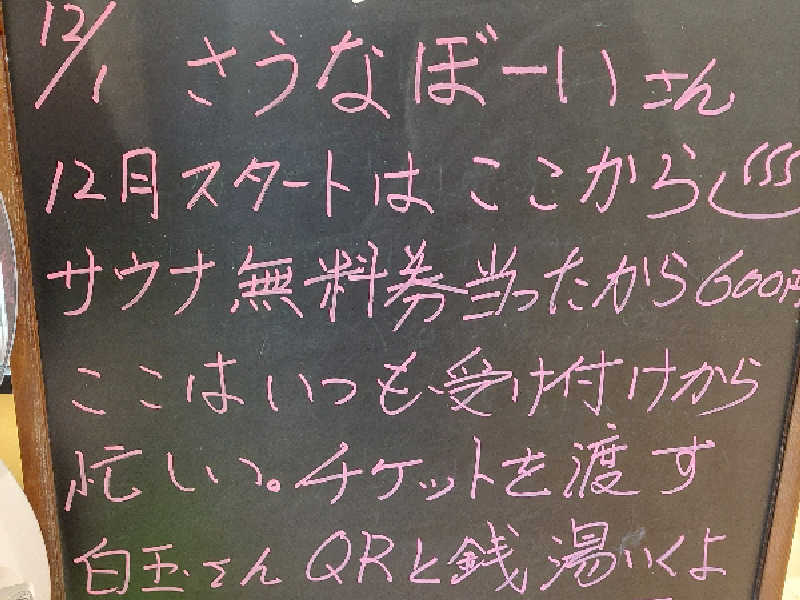 12/1 さうなぼーいさん
12月スタートはここから♨
サウナ無料券当ったから600円
ここはいつも受け付けから
忙しい。チケットを渡す
白玉さんQRと銭湯いくよ